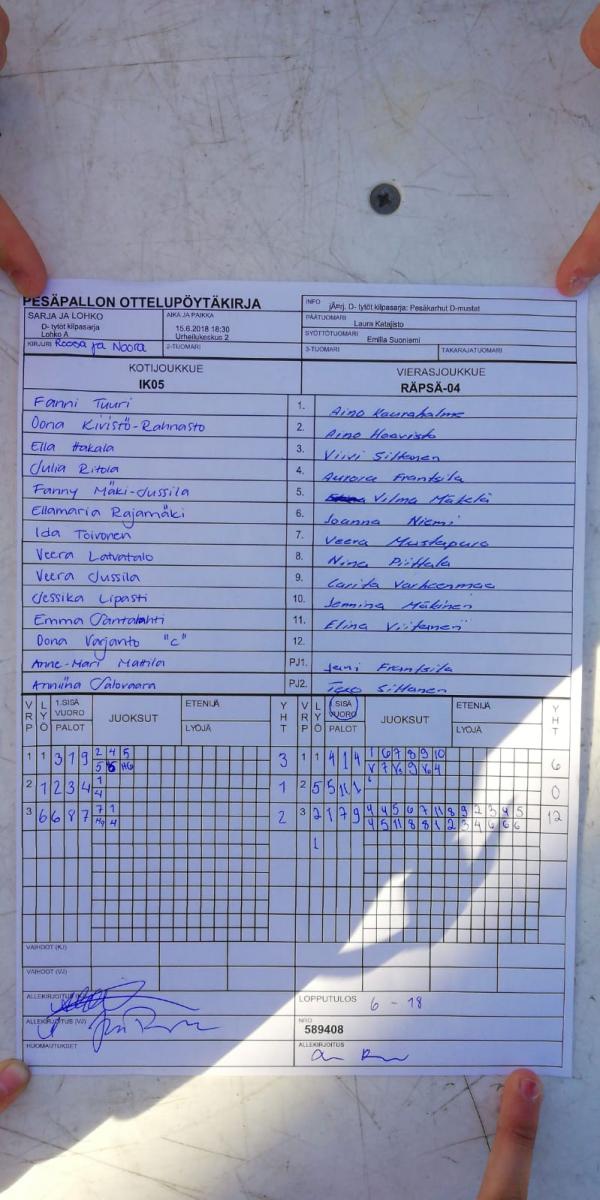 PESÄPALLON OTTELUPÖYTÄKIRJA
INFO jÄ¤rj. D- tytöt kilpasarja: Pesäkarhut D-mustat
SARJA JA LOHKO
D- tytöt kilpasarja
Lohko A
AIKA JA PAIKKA
15.6.2018 18:30
Urheilukeskus 2
PÄÄTUOMARI
Laura Katajisto
SYÖTTÖTUOMARI
Emilia Suoniemi
KIRJURI Roosa ja Noora
2-TUOMARI
3-TUOMARI
TAKARAJATUOMARI
KOTIJOUKKUE
IK05
VIERASJOUKKUE
RÄPSÄ-04
Fanni Tuuri 1. Aino Kauraholma
Oona Kivistö-Rahnasto 2. Aino Haavisto
Ella Hakala 3. Viivi Siltanen
Julia Ritola 4. Aurora Frantsila
Fanny Mäki-Jussila 5. Vilma Mäkelä
Ellamaria Rajamäki 6. Joanna Niemi
Ida Toivonen 7. Veera Mustapuro
Veera Latvatalo 8. Nina Piittala
Veera Jussila 9. Carita Varheenmaa
Jessika Lipasti 10. Jemina Mäkinen
Emma Santalahti 11. Elina Viitanen
Oona Varjanto "C" 12.
Anne-Mari Mattila PJ1. Jani Frantsila
Anniina Salovaara PJ2. Tero Siltanen
VRP LYÖ 1.SISÄ VUORO PALOT JUOKSUT ETENIJÄ LYÖJÄ YHT
VRP LYÖ SISÄ VUORO PALOT JUOKSUT ETENIJÄ LYÖJÄ YHT
1 1 3 1 9 2 4 5 3 1 1 4 1 4 1 6 7 8 9 10 6
2 1 2 3 4 1 1 2 5 5 11 1 0
4
3 6 6 8 7 7 1 2 3 2 1 7 9 4 4 5 6 7 11 8 9 2 3 4 5 12
4 5 11 8 8 1 2 3 4 6 6 6
1
VAIHDOT (KJ)
VAIHDOT (VJ)
ALLEKIRJOITUS (KJ)
LOPPUTULOS 6 - 18
ALLEKIRJOITUS (VJ)
NRO
589408
HUOMAUTUKSET
ALLEKIRJOITUS